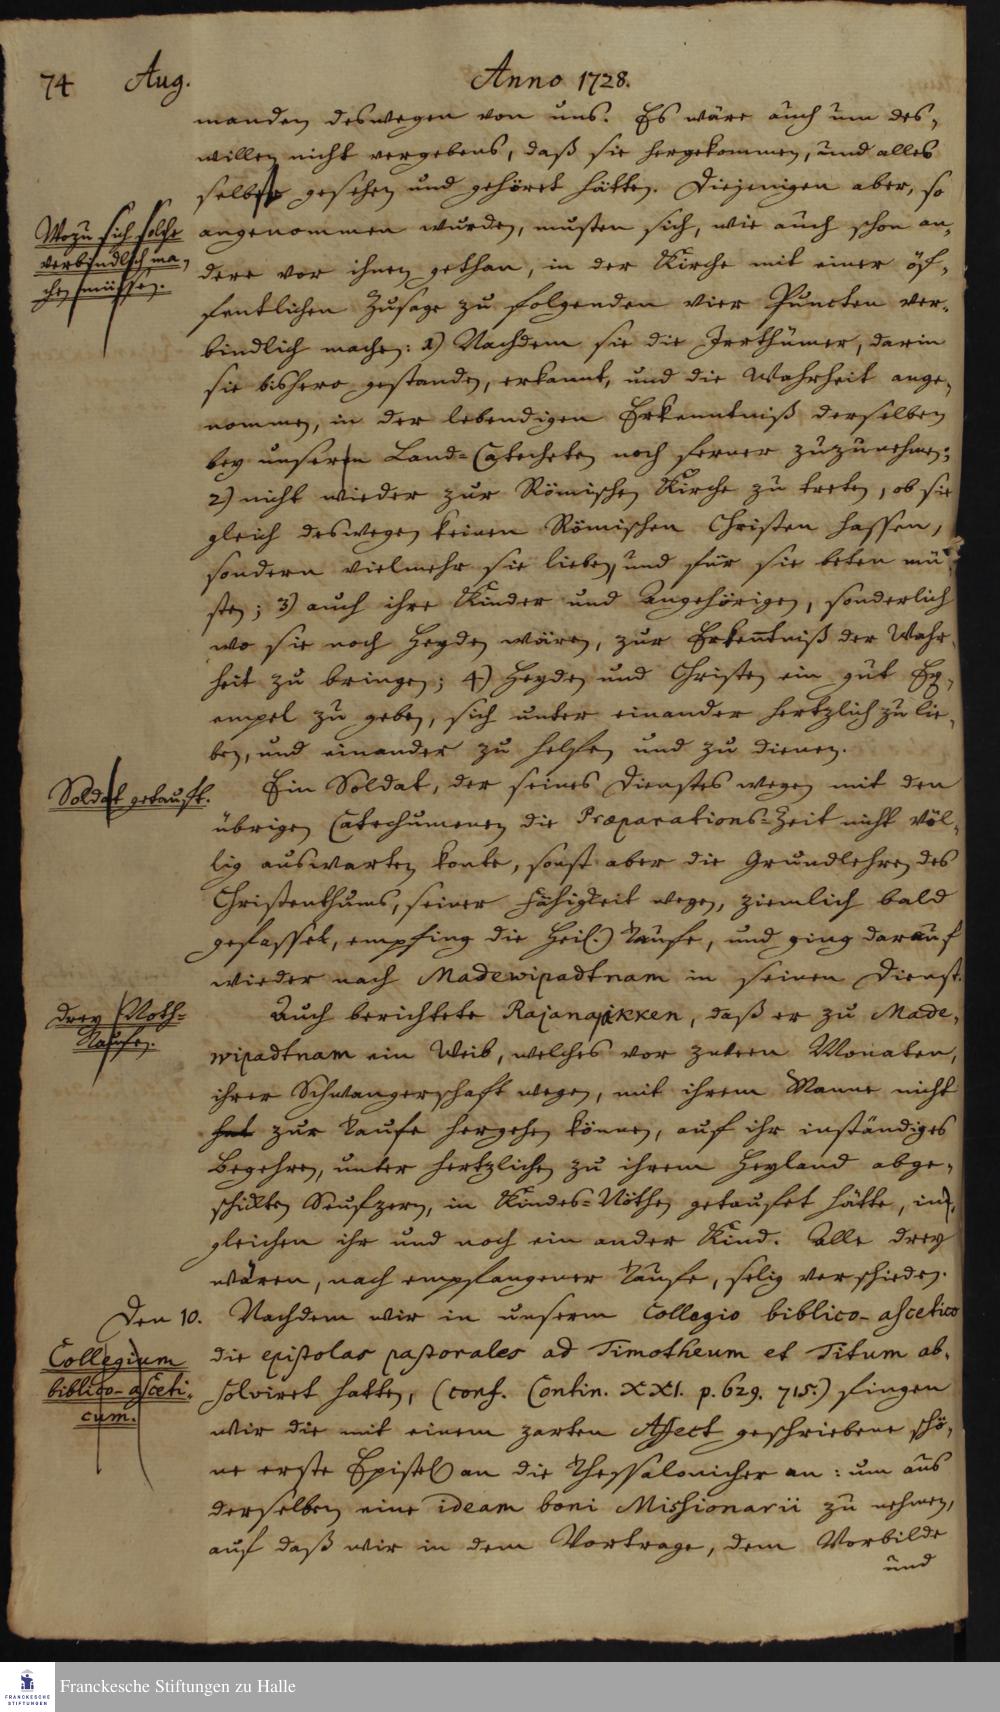 74 Aug. Anno 1728.
manden deswegen von uns. Es wäre auch um des,
willen nicht vergebens, daß sie hergekommen, und alles
selbst gesehen und gehöret hätten. Diejenigen aber, so
Wozu sich solche
verbindlich ma,
chen müssen.
angenommen wurden, musten sich, wie auch schon an,
dere vor ihnen gethan, in der Kirche mit einer öf,
fentlichen Zusage zu folgenden vier Puncten ver,
bindlich machen: 1) Nachdem sie die Irrthümer, darin
sie bishero gestanden, erkannt, und die Wahrheit ange,
nommen, in der lebendigen Erkenntniß derselben
bey unserm Land-Catecheten noch ferner zuzunehmen;
2) nicht wieder zur Römischen Kirche zu treten, ob sie
gleich deswegen keinen Römischen Christen hassen,
sondern vielmehr sie lieben, und für sie beten mü,
sten; 3) auch ihre Kinder und Angehörigen, sonderlich
wo sie noch Heyden wären, zur Erkenntniß der Wahr,
heit zu bringen; 4) Heyden und Christen ein gut Ex,
empel zu geben, sich unter einander hertzlich zu lie,
ben, und einander zu helfen und zu dienen.
Soldat getauft.
Ein Soldat, der seines Dienstes wegen mit den
übrigen Catechumenen die Præparations-Zeit nicht völ,
lig auswarten konte, sonst aber die Grundlehren des
Christenthums, seiner Fähigkeit wegen, ziemlich bald
gefasset, empfing die Heil.) Taufe, und ging darauf
wieder nach Madewipadtnam in seinen Dienst.
Drey Noth-
Taufen.
Auch berichtete Rajanaikken, daß er zu Made,
wipadtnam ein Weib, welches vor zween Monaten,
ihrer Schwangerschaft wegen, mit ihrem Manne nicht
hat zur Taufe hergehen können, auf ihr inständiges
Begehren, unter hertzlichen zu ihrem Heyland abge,
schickten Seufzern, in Kindes-Nöthen getaufet hätte, in,
gleichen ihr und noch ein ander Kind. Alle drey
wären, nach empfangener Taufe, selig verschieden.
Den 10. Nachdem wir in unserm Collegio biblico-ascetico
Collegium
biblico-asceti,
cum.
die epistolas pastorales ad Timotheum et Titum ab,
solviret hatten, (conf. Contin. XXI. p. 629. 715.) fingen
wir die mit einem zarten Affect geschriebene schö,
ne erste Epistel an die Thessalonicher an: um aus
derselben eine ideam boni Missionarii zu nehmen,
auf daß wir in dem Vortrage, dem Vorbilde
und
FRANCKESCHE
STIFTUNGEN
Franckesche Stiftungen zu Halle